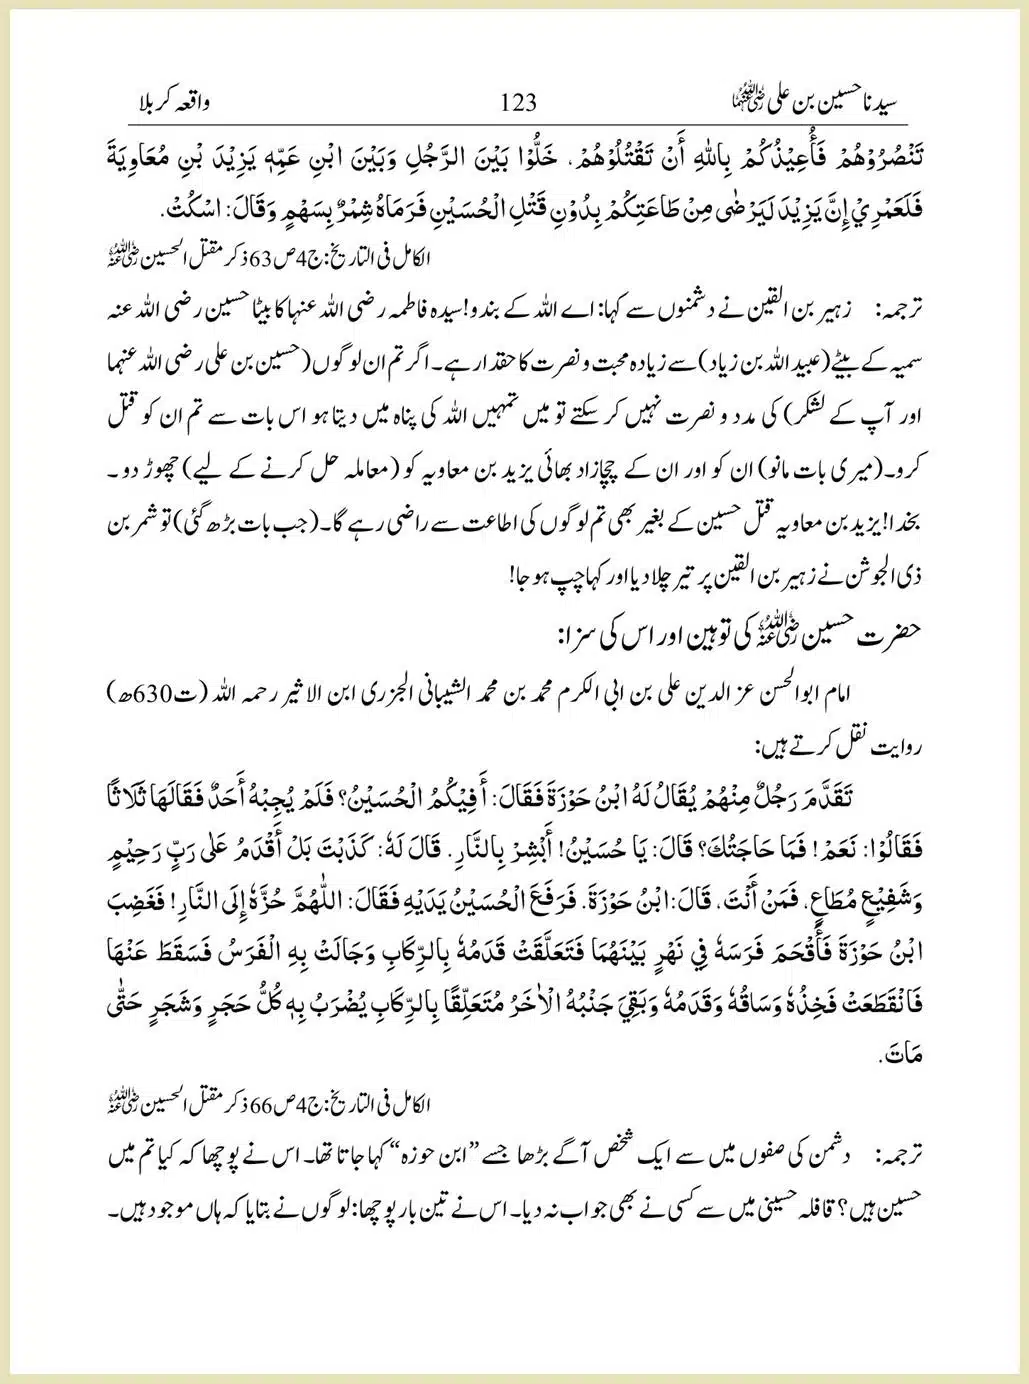 سیدنا حسین بن علی رضی اللہ عنہما 123 واقعہ کربلا
تَنْصُرُوْهُمْ فَأُعِيْذُكُمْ بِاللهِ أَنْ تَقْتُلُوْهُمْ، خَلُّوْا بَيْنَ الرَّجُلِ وَبَيْنَ ابْنِ عَمِّهٖ يَزِيْدَ بْنِ مُعَاوِيَةَ
فَلَعَمْرِيْ إِنَّ يَزِيْدَ لَيَرْضٰى مِنْ طَاعَتِكُمْ بِدُوْنِ قَتْلِ الْحُسَيْنِ فَرَمَاهُ شِمْرٌ بِسَهْمٍ وَقَالَ: اسْكُتْ.
الکامل فی التاریخ: ج4ص63ذکر مقتل الحسین رضی اللہ عنہ
ترجمہ: زہیر بن القین نے دشمنوں سے کہا: اے اللہ کے بندو! سیدہ فاطمہ رضی اللہ عنہا کا بیٹا حسین رضی اللہ عنہ
سمیہ کے بیٹے (عبید اللہ بن زیاد) سے زیادہ محبت و نصرت کا حقدار ہے۔ اگر تم ان لوگوں (حسین بن علی رضی اللہ عنہما
اور آپ کے لشکر) کی مدد و نصرت نہیں کر سکتے تو میں تمہیں اللہ کی پناہ میں دیتا ہو اس بات سے تم ان کو قتل
کرو۔ (میری بات مانو) ان کو اور ان کے چچازاد بھائی یزید بن معاویہ کو (معاملہ حل کرنے کے لیے) چھوڑ دو۔
بخدا! یزید بن معاویہ قتل حسین کے بغیر بھی تم لوگوں کی اطاعت سے راضی رہے گا۔ (جب بات بڑھ گئی) تو شمر بن
ذی الجوشن نے زہیر بن القین پر تیر چلا دیا اور کہا چپ ہو جا!
حضرت حسین رضی اللہ عنہ کی توہین اور اس کی سزا:
امام ابوالحسن عز الدین علی بن ابی الکرم محمد بن محمد الشیبانی الجزری ابن الاثیر رحمہ اللہ (ت630ھ)
روایت نقل کرتے ہیں:
تَقَدَّمَ رَجُلٌ مِنْهُمْ يُقَالُ لَهُ ابْنُ حَوْزَةَ فَقَالَ: أَفِيْكُمُ الْحُسَيْنُ؟ فَلَمْ يُجِبْهُ أَحَدٌ فَقَالَهَا ثَلَاثًا
فَقَالُوْا: نَعَمْ! فَمَا حَاجَتُكَ؟ قَالَ: يَا حُسَيْنُ! أَبْشِرْ بِالنَّارِ. قَالَ لَهٗ: كَذَبْتَ بَلْ أَقْدَمُ عَلٰى رَبٍّ رَحِيْمٍ
وَشَفِيْعٍ مُطَاعٍ، فَمَنْ أَنْتَ، قَالَ: ابْنُ حَوْزَةَ. فَرَفَعَ الْحُسَيْنُ يَدَيْهِ فَقَالَ: اللّٰهُمَّ حُزَّهٗ إِلَى النَّارِ! فَغَضِبَ
ابْنُ حَوْزَةَ فَأَقْحَمَ فَرَسَهٗ فِيْ نَهْرٍ بَيْنَهُمَا فَتَعَلَّقَتْ قَدَمُهٗ بِالرِّكَابِ وَجَالَتْ بِهِ الْفَرَسُ فَسَقَطَ عَنْهَا
فَانْقَطَعَتْ فَخِذُهٗ وَسَاقُهٗ وَقَدَمُهٗ وَبَقِيَ جَنْبُهُ الْاٰخَرُ مُتَعَلِّقًا بِالرِّكَابِ يُضْرَبُ بِهٖ كُلُّ حَجَرٍ وَشَجَرٍ حَتّٰى
مَاتَ.
الکامل فی التاریخ: ج4ص66ذکر مقتل الحسین رضی اللہ عنہ
ترجمہ: دشمن کی صفوں میں سے ایک شخص آگے بڑھا جسے ”ابن حوزہ“ کہا جاتا تھا۔ اس نے پوچھا کہ کیا تم میں
حسین ہیں؟ قافلہ حسینی میں سے کسی نے بھی جواب نہ دیا۔ اس نے تین بار پوچھا: لوگوں نے بتایا کہ ہاں موجود ہیں۔